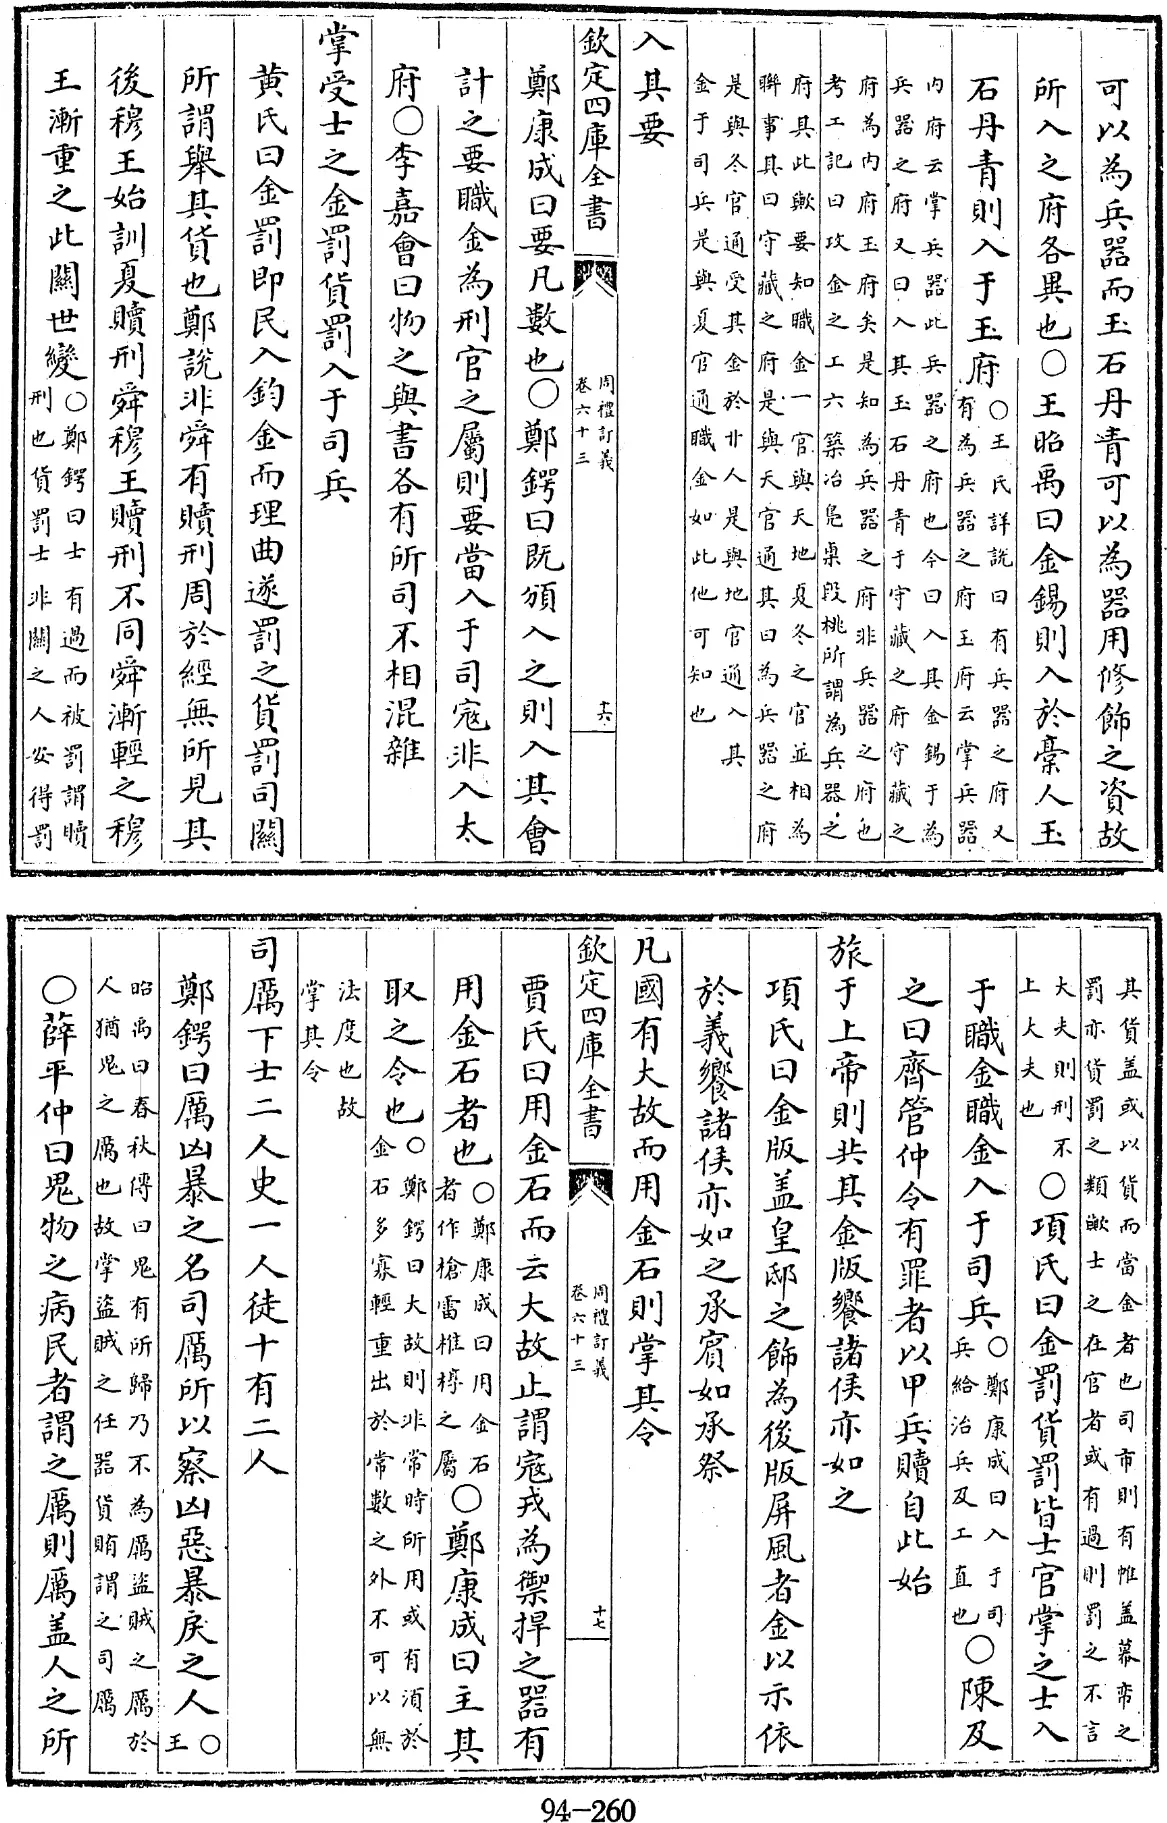 可以為兵器而玉石丹青可以為器用修飾之資故
所入之府各異也○王昭禹曰金錫則入於稾人玉
石丹青則入于玉府○王氏詳說曰有兵器之府又有為兵器之府玉府云掌兵器
内府云掌兵器此兵器之府也今曰入其金錫于為
兵器之府又曰入其玉石丹青于守藏之府守藏之
府為内府玉府矣是知為兵器之府非兵器之府也
考工記曰攻金之工六築冶鳧㮚段桃所謂為兵器之
府具此歟要知職金一官與天地夏冬之官並相為
聨事其曰守藏之府是與天官通其曰為兵器之府
是與冬官通受其金於卝人是與地官通入其
金于司兵是與夏官通職金如此他可知也
入其要
欽定四庫全書
周禮訂義
卷六十三
十六
鄭康成曰要凡數也○鄭鍔曰既頒入之則入其會
計之要職金為刑官之屬則要當入于司冦非入太
府○李嘉會曰物之與書各有所司不相混雜
掌受士之金罰貨罰入于司兵
黄氏曰金罰即民入鈞金而理曲遂罰之貨罰司關
所謂舉其貨也鄭說非舜有贖刑周於經無所見其
後穆王始訓夏贖刑舜穆王贖刑不同舜漸輕之穆
王漸重之此關世變○鄭鍔曰士有過而被罰謂贖刑也貨罰士非關之人安得罰
其貨盖或以貨而當金者也司市則有帷盖幕帟之
罰亦貨罰之類歟士之在官者或有過則罰之不言
大夫則刑不上大夫也○項氏曰金罰貨罰皆士官掌之士入
于職金職金入于司兵○鄭康成曰入于司兵給治兵及工直也○陳及
之曰齊管仲令有罪者以甲兵贖自此始
旅于上帝則共其金版饗諸侯亦如之
項氏曰金版盖皇邸之飾為後版屏風者金以示依
於義饗諸侯亦如之承賓如承祭
凡國有大故而用金石則掌其令
欽定四庫全書
周禮訂義
卷六十三
十七
賈氏曰用金石而云大故止謂宼戎為禦捍之器有
用金石者也○鄭康成曰用金石者作槍雷椎椁之屬○鄭康成曰主其
取之令也○鄭鍔曰大故則非常時所用或有湏於金石多寡輕重出於常數之外不可以無
法度也故
掌其令
司厲下士二人史一人徒十有二人
鄭鍔曰厲凶暴之名司厲所以察凶惡暴戾之人○王
昭禹曰春秋傳曰鬼有所歸乃不為厲盜賊之厲於
人猶鬼之厲也故掌盜賊之任器貨賄謂之司厲
○薛平仲曰鬼物之病民者謂之厲則厲盖人之所
94-260